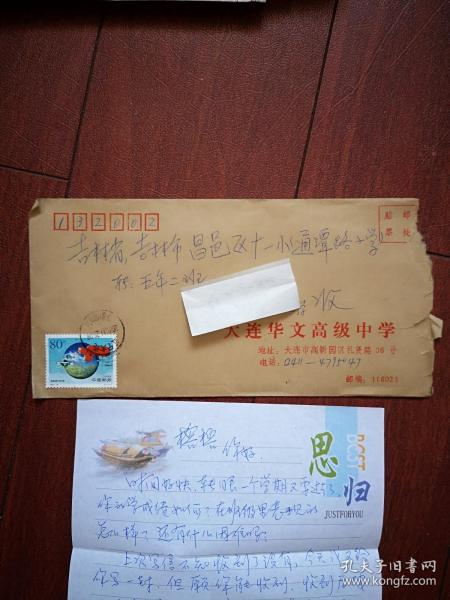 132002
贴邮
票处
吉林省吉林市昌邑区十一小通潭路小学
转:五年二班
收
大连华文高级中学
地址:大连市高新园区礼贤路36号
电话:0411-4795047
邮编:116023
80分
中国邮政
POST
思归
JUSTFORYOU
你好
时间好快,转眼一个学期又要过了,
你的学成绩如何?在班级里表现的
怎么样?还有什么困难吗?
上次写信不知收到了没有,今天我又给
你写一封,但愿你能收到,收到
孔夫子旧书网